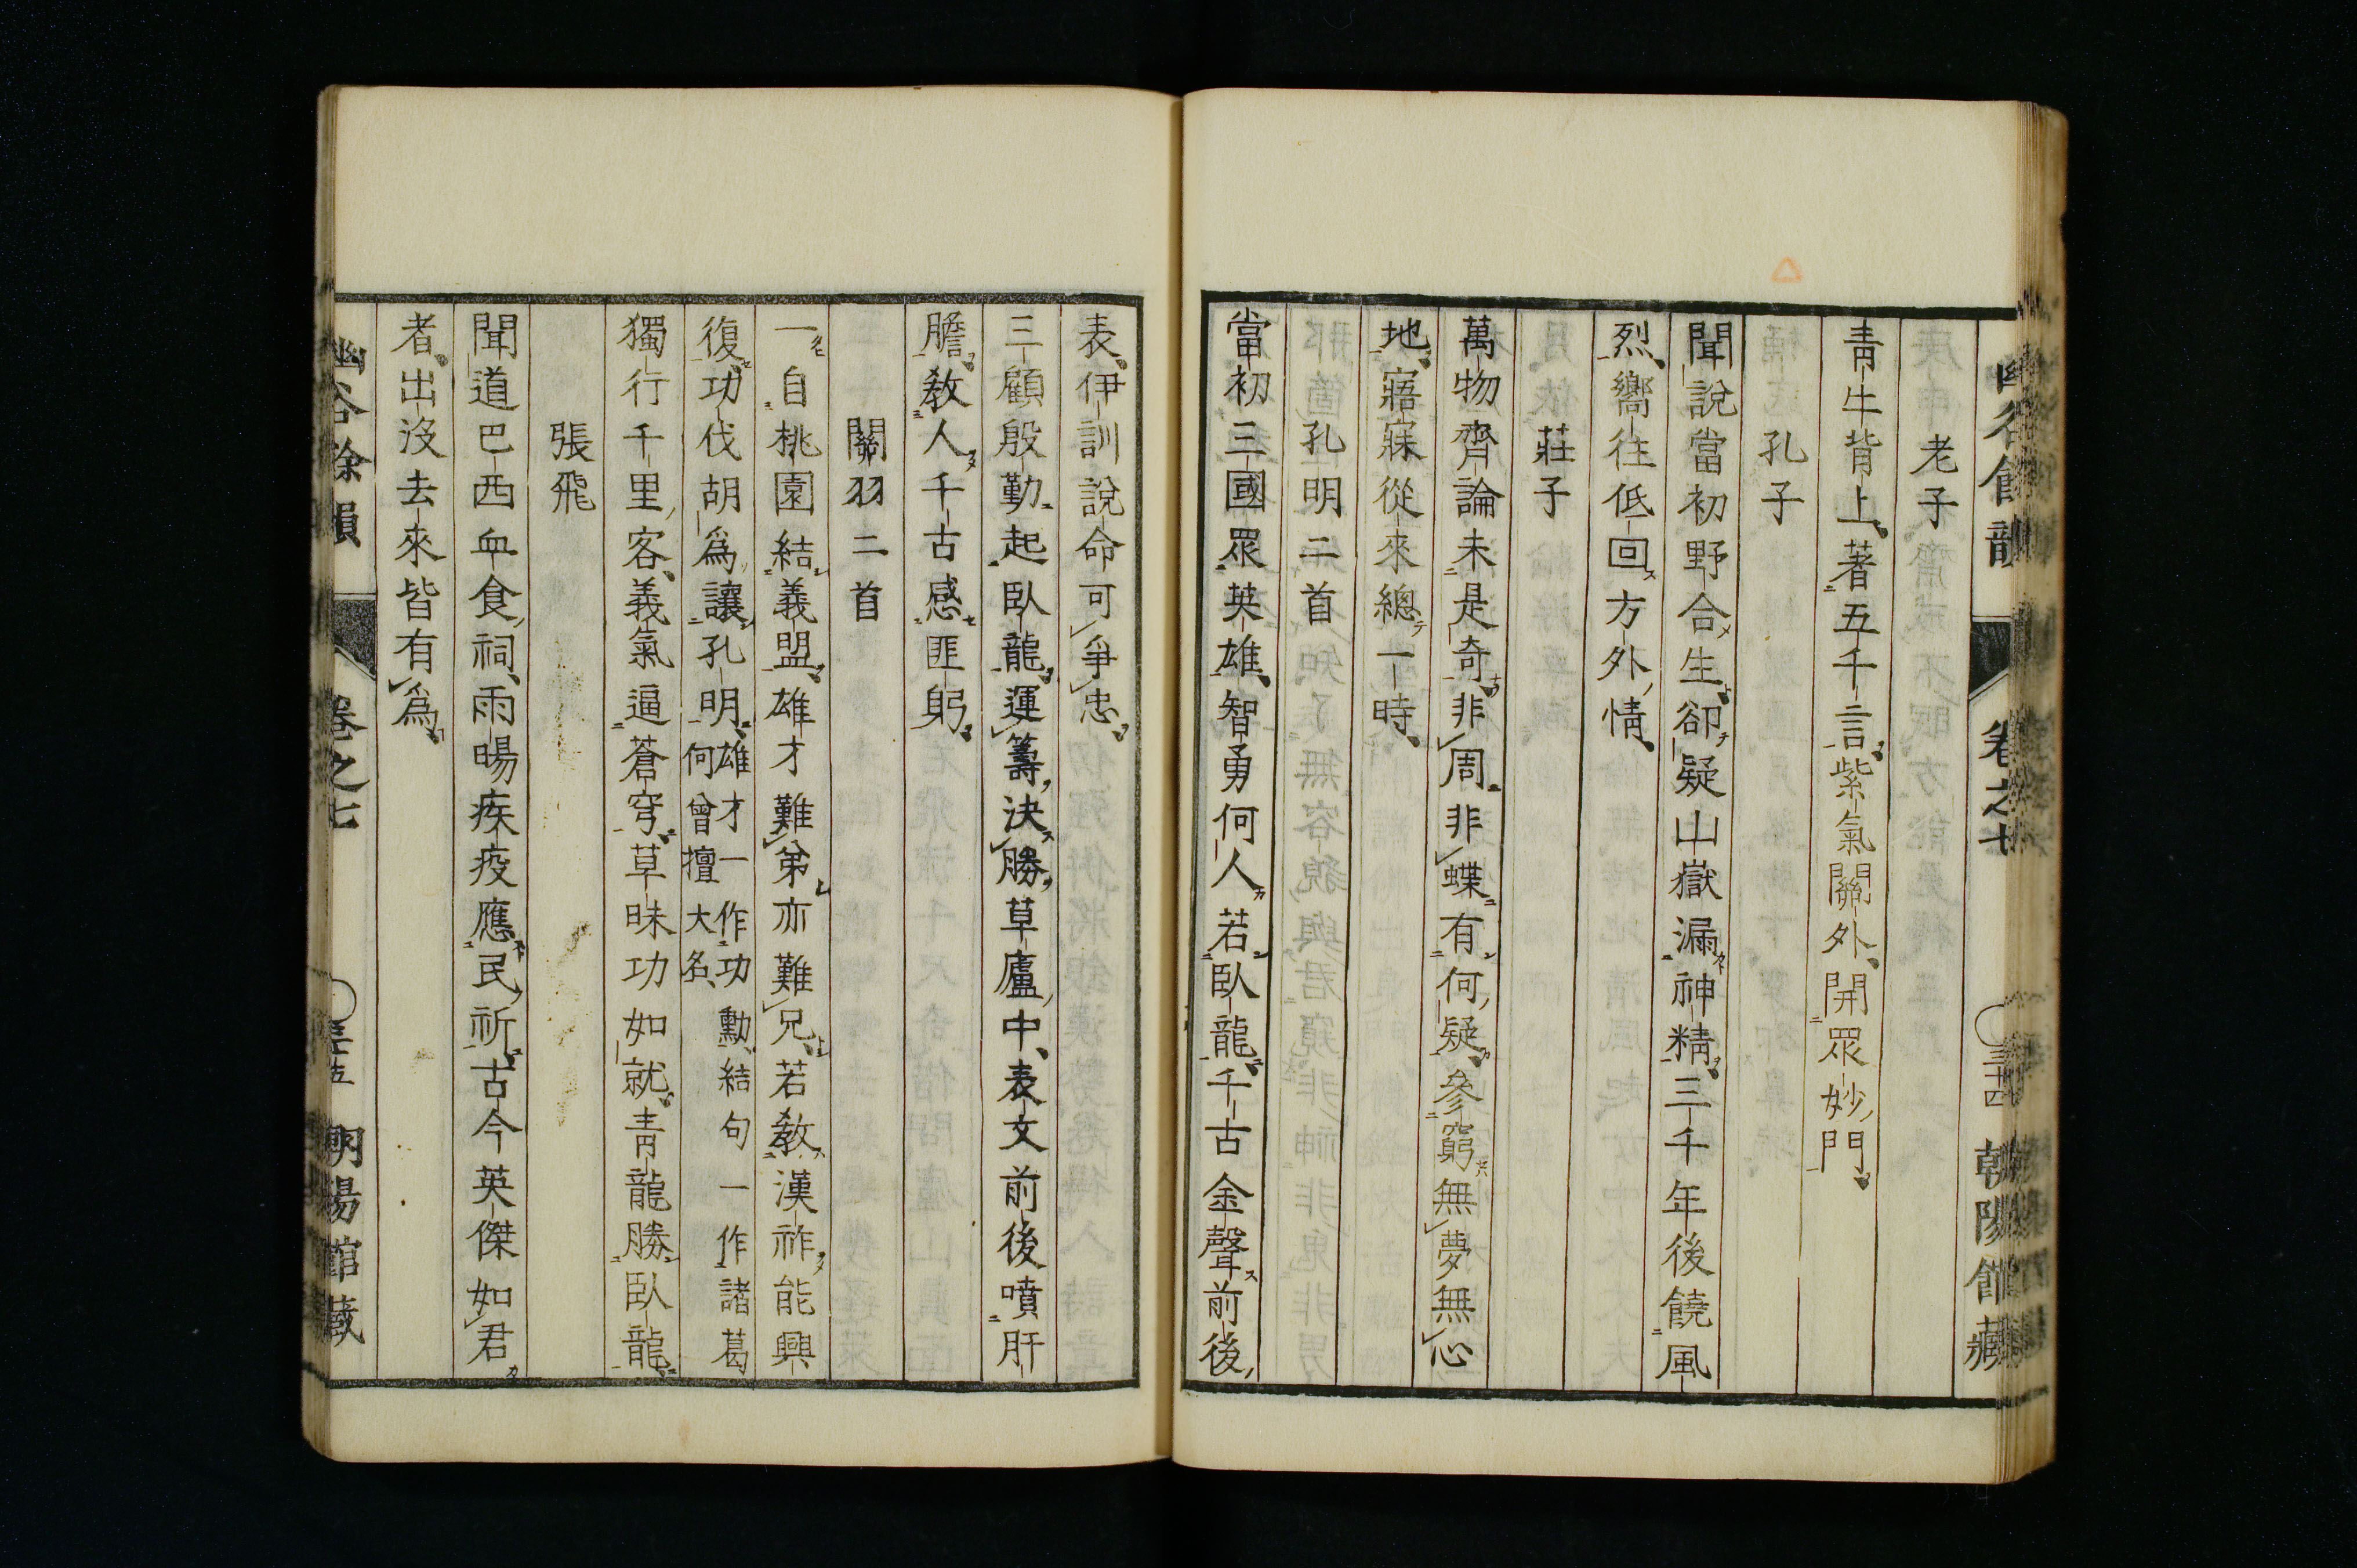 幽谷餘韻 卷之七 三十四 朝陽館藏
老子
青牛背上著五千言紫氣關外開眾妙門
孔子
聞說當初野合生卻疑山嶽漏神精三千年後饒風
烈嚮往低回方外情
莊子
萬物齊論未是奇非周非蝶有何疑參窮無夢無心
地寤寐從來總一時
孔明二首
當初三國眾英雄智勇何人若臥龍千古金聲前後
表伊訓說命可爭忠
三顧殷勤起臥龍運籌決勝草廬中表文前後噴肝
膽教人千古感匪躬
關羽二首
一自桃園結義盟雄才難弟亦難兄若教漢祚能興
復功伐胡為讓孔明雄才一作功勳結句一作諸葛何曾擅大名
獨行千里客義氣逼蒼穹草昧功如就青龍勝臥龍
張飛
聞道巴西血食祠雨暘疾疫應民祈古今英傑如君
者出沒去來皆有為
幽谷餘韻 卷之七 三十五 朝陽館藏